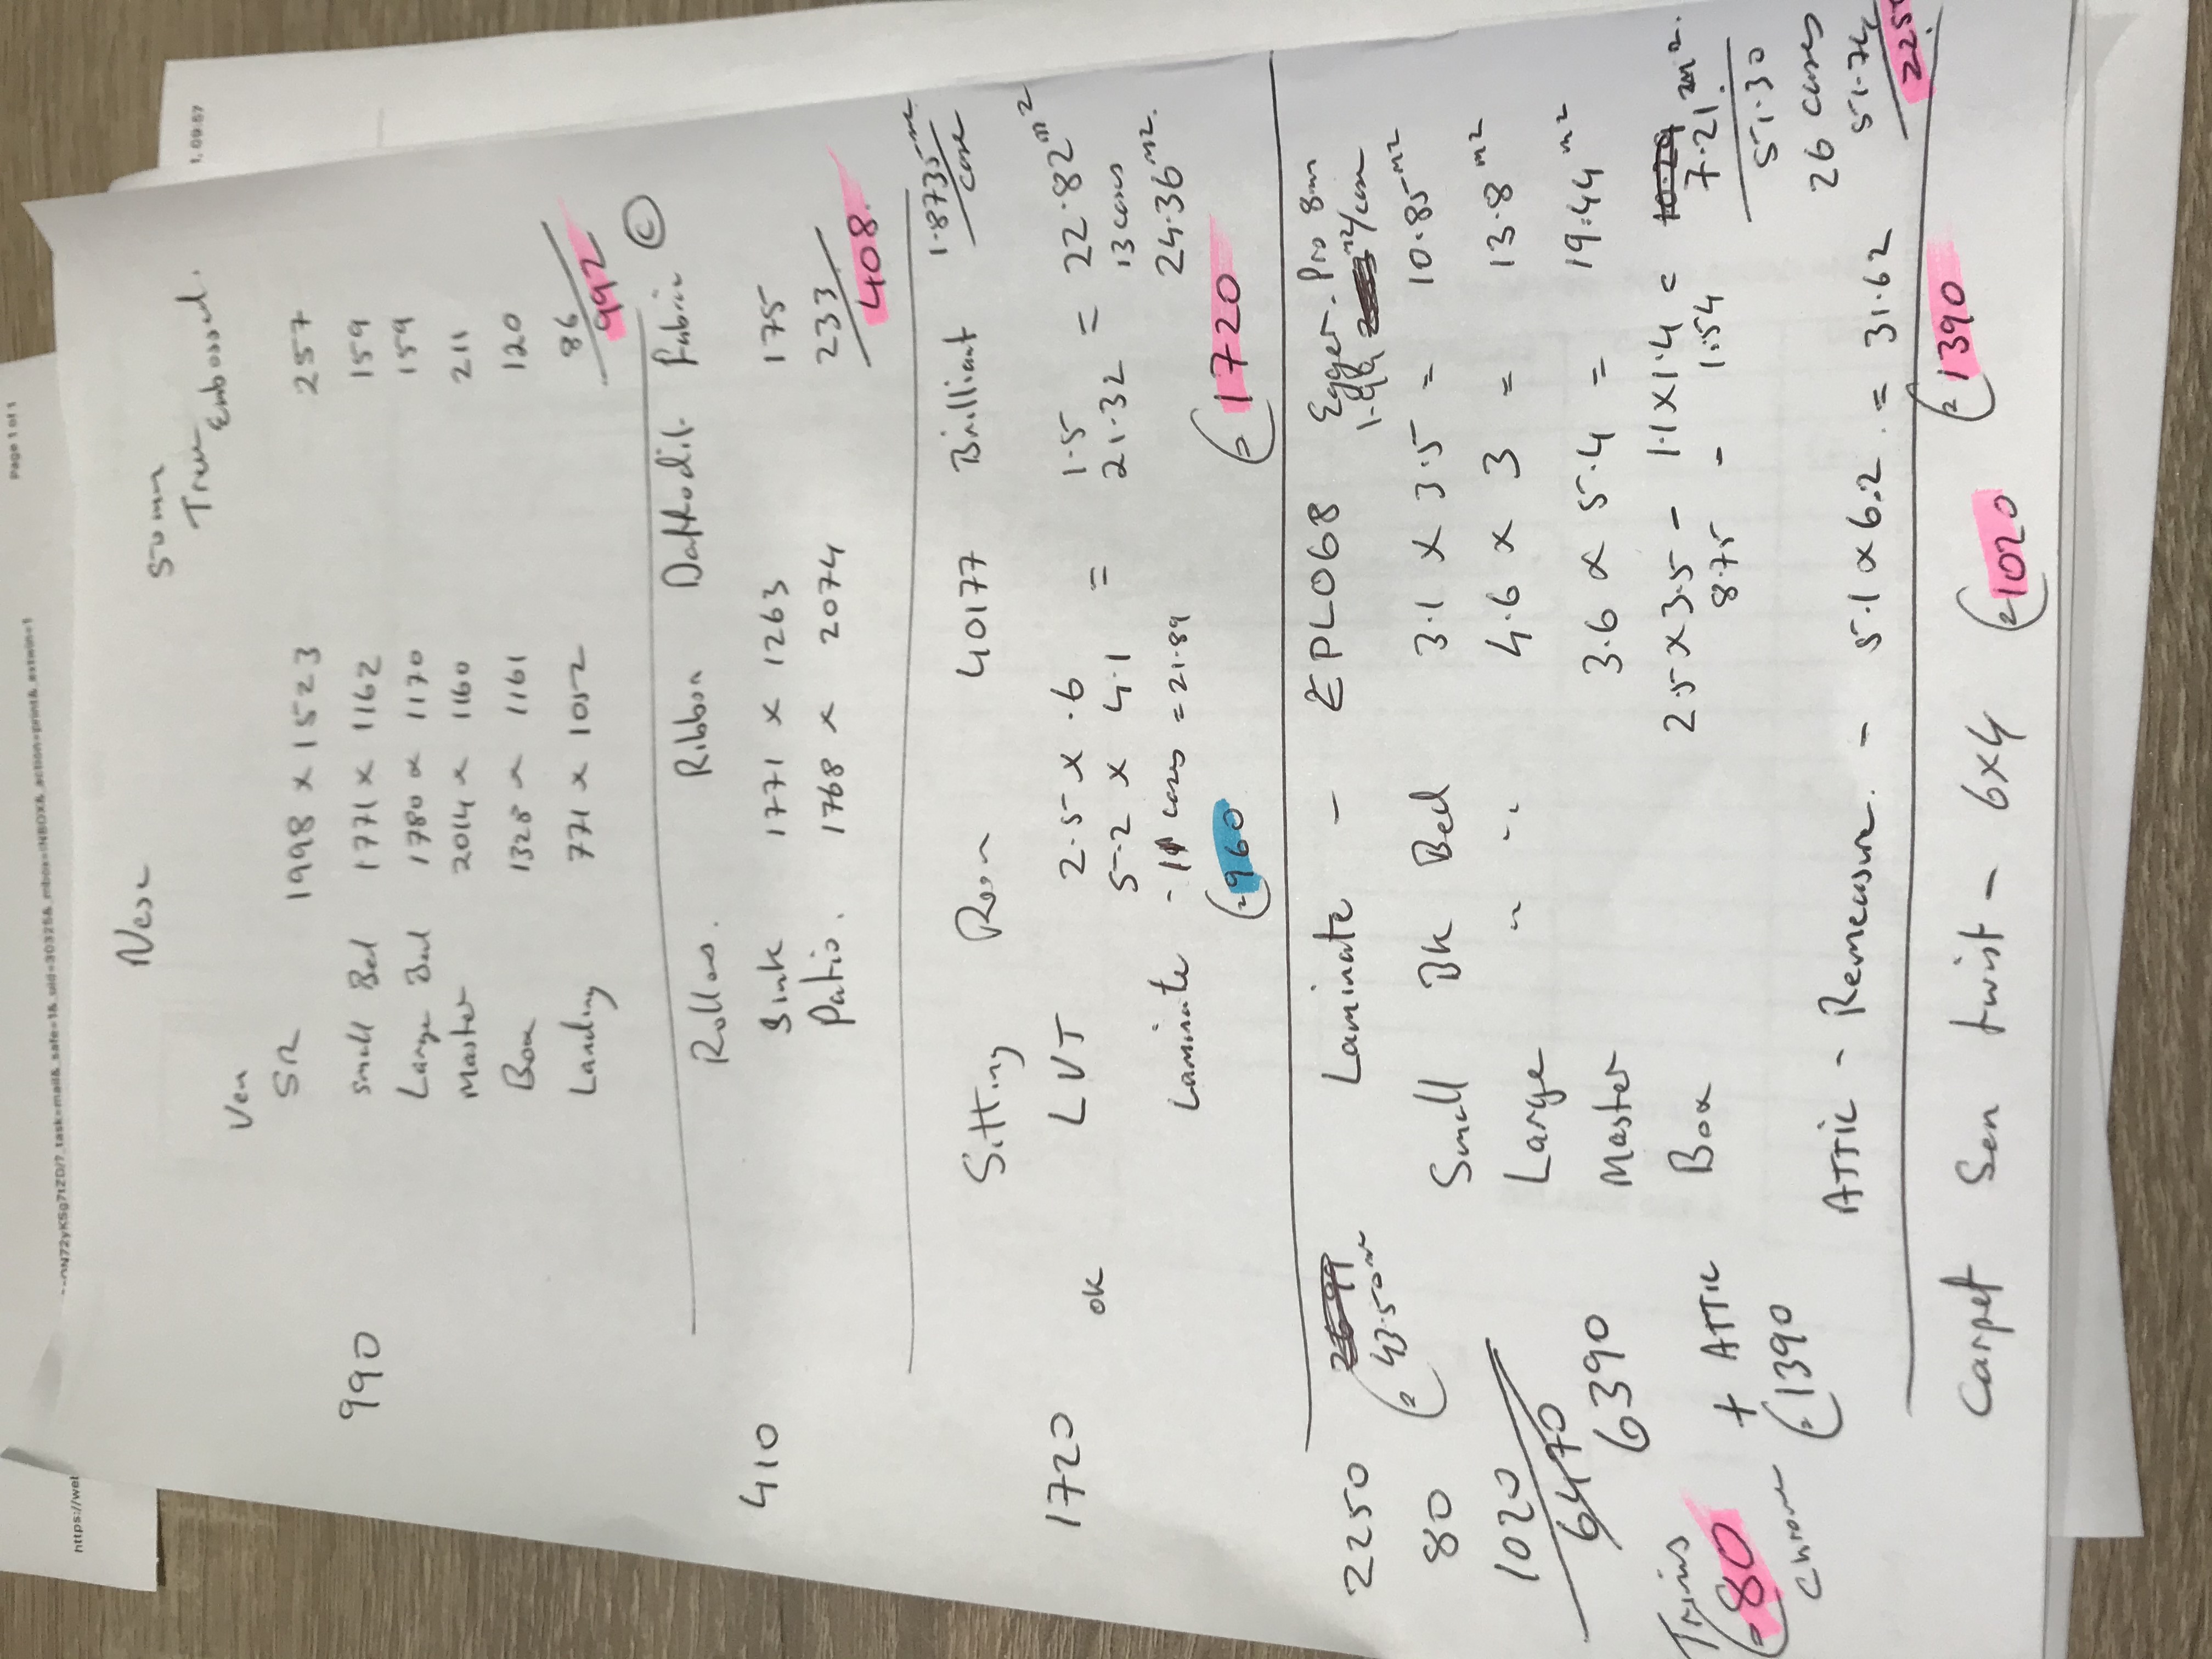 Page 1 of 1
1, 09:57
https://we
50mm
Trew Embossed.
Ven
SR 1998 x 1523 257
Small Bed 1771 x 1162 159
Large Bed 1780 x 1170 159
Master 2014 x 1160 211
Box 1328 x 1161 120
Landing 771 x 1052 86
992
990
Rollers. Ribbon Daffodil Fabric C
Sink 1771 x 1263 175
Patio. 1768 x 2074 233
408.
410
Sitting Room 40177 Brilliant 1.8735 m2/case
LVT 2.5 x .6 1.5
5.2 x 4.1 = 21.32 = 22.82 m2
13 cases
24.36 m2.
Laminate - 11 cases = 21.89
£960 £1720
1720 ok
Laminate - EPL068 Egger. Pro 8mm
m2/case
Small Bk Bed 3.1 x 3.5 = 10.85 m2
Large " " 4.6 x 3 = 13.8 m2
Master 3.6 x 5.4 = 19.44 m2
Box 2.5 x 3.5 - 1.1 x 1.4 = 7.21 m2.
8.75 - 1.54
51.30
26 cases
51.74
225
43.50
2250
80
1020
6470
6390
Trims + ATTIC
£80 £1390
Chrome
ATTIC - Remeasure. - 5.1 x 6.2. = 31.62
£1390
Carpet Sen twist - 6x4 £1020